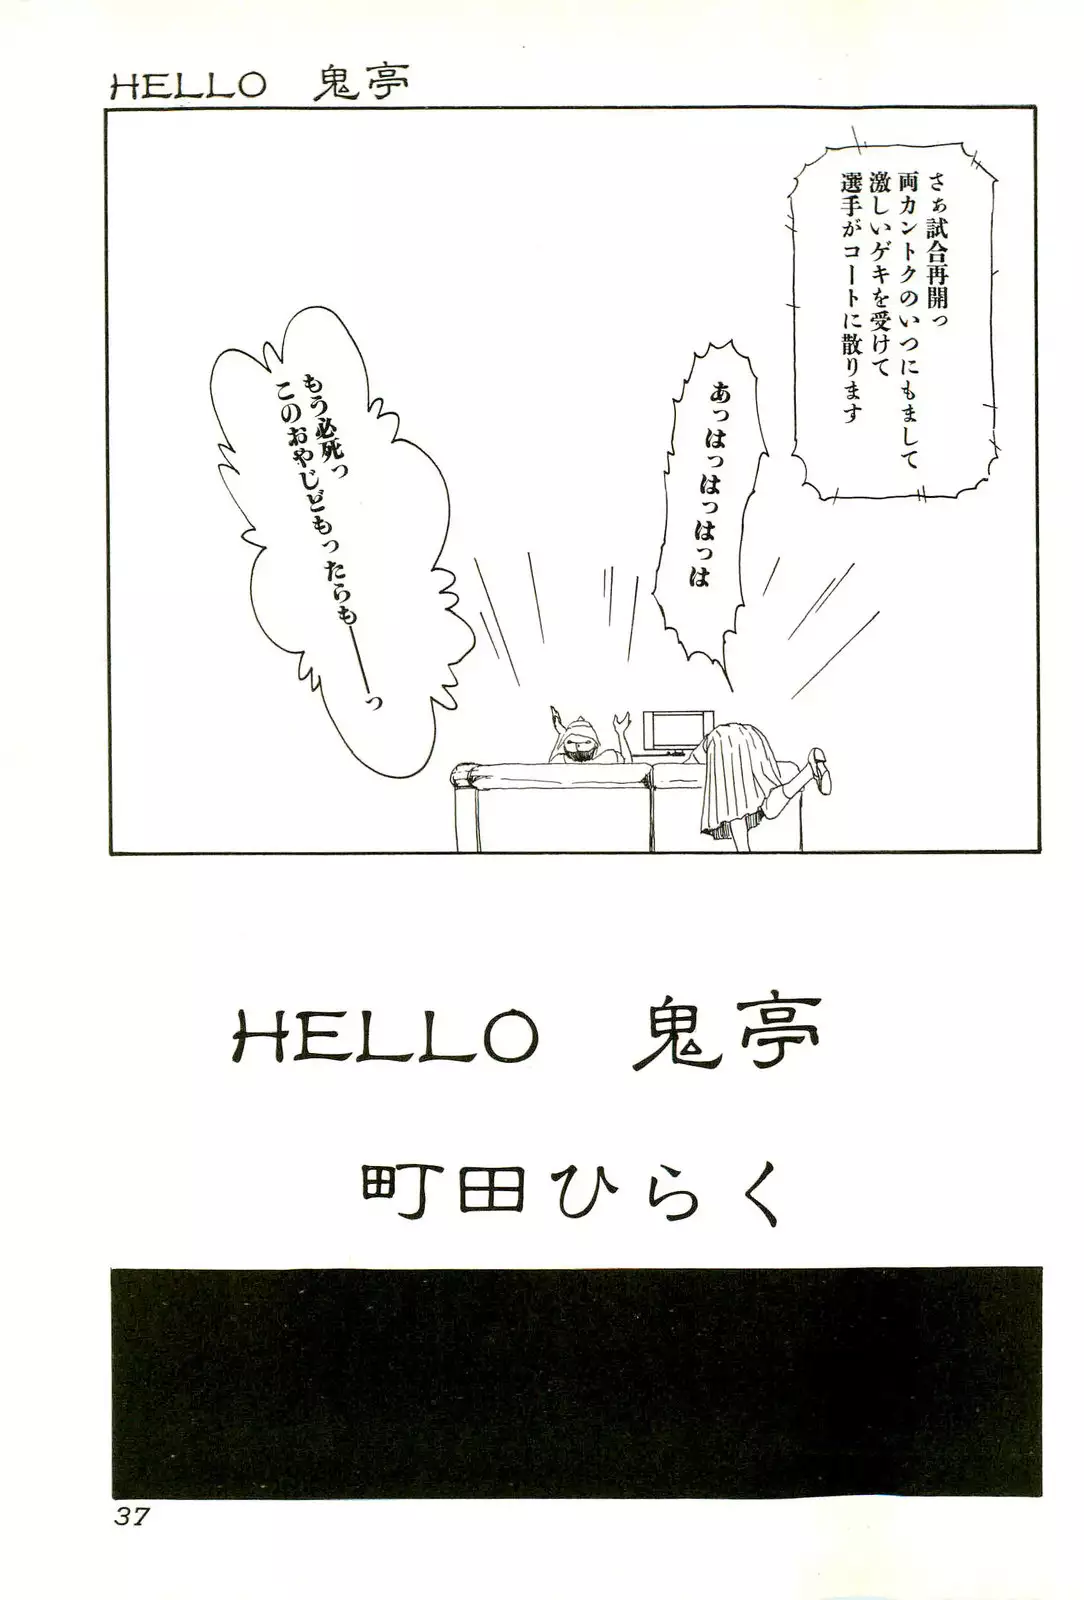 HELLO 鬼亭
さぁ試合再開っ
両カントクのいつにもまして
激しいゲキを受けて
選手がコートに散ります
あっはっはっはっは
もう必死っ
このおやじどもったらも――っ
HELLO 鬼亭
町田ひらく
37